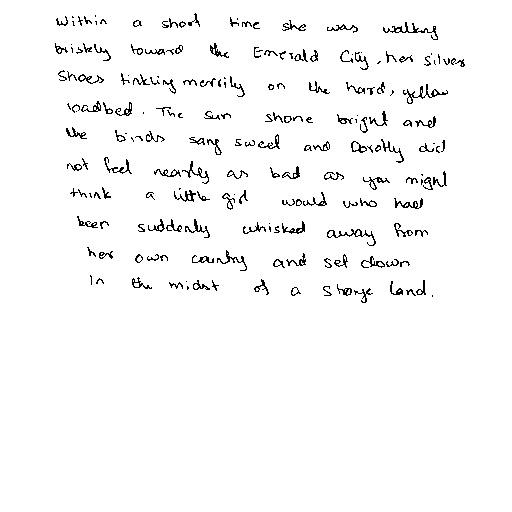 within a short time she was walking
briskly toward the Emerald City, her silver
Shoes tinkling merrily on the hard, yellow
roadbed. The sun shone bright and
the birds sang sweet and Dorothy did
not feel nearly as bad as you might
think a little girl would who had
been suddenly whisked away from
her own country and set down
in the midst of a strange land.